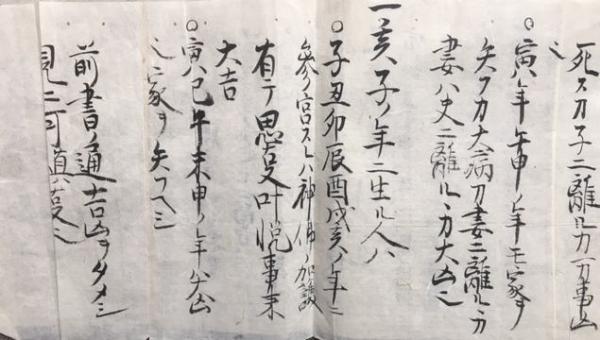 死スカ子ニ離ルカ万事凶
之
○寅ハ年午申ノ年モ家ヲ
失フカ大病カ妻ニ離ルヽカ
妻ハ丈ニ離ルヽカ大凶之
一亥子ノ年ニ生ル人ハ
○子丑卯辰酉戌亥ノ年ニ
参ノ宮スレハ神佛ノ加護
有テ思叟叶悦事来
大吉
○寅ハ巳午未申ノ年ハ大凶
之家ヲ失フヘシ
前書ノ通吉凶ヲタメシ
見ニ可真叟之